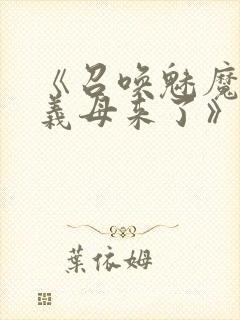 《召喚魅魔
義母来了》
葉依姆